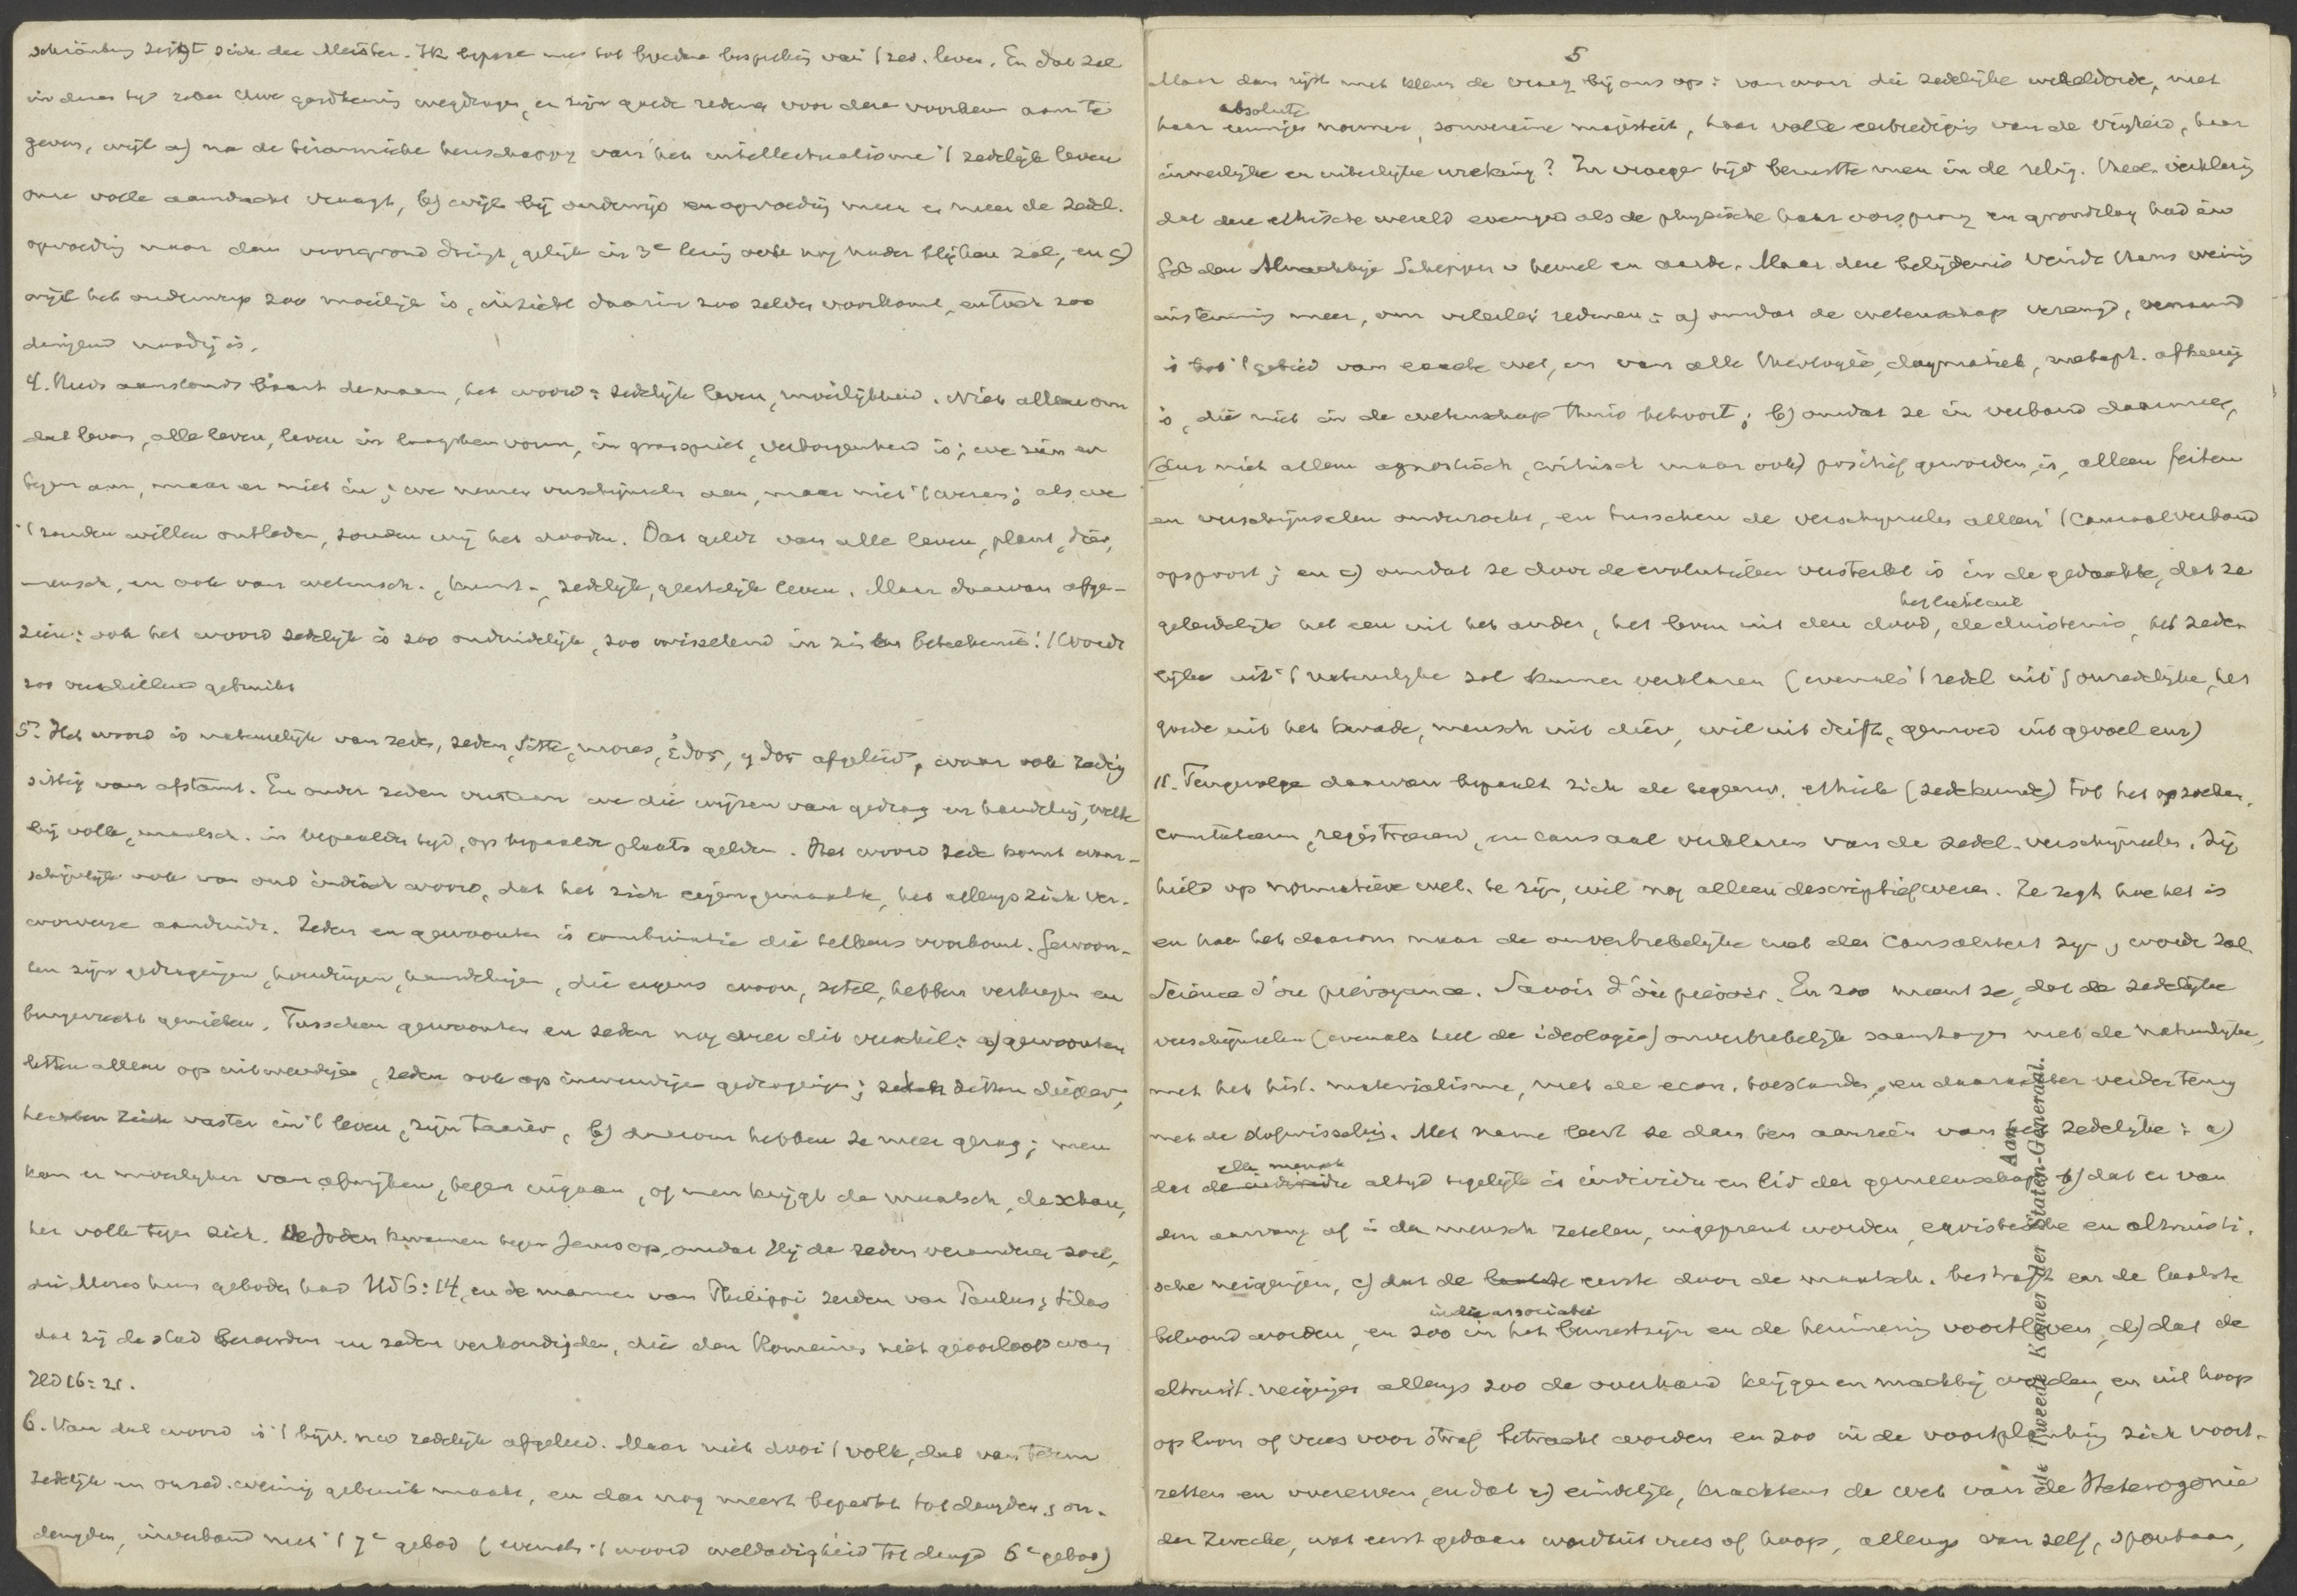 schränkung zeigt sich der Meister. Ik bepase me tot breedere bespreking van 't zed. leven. En dat zal
in dezen tijd zeker Uwe goedkeuring wegdragen, er zijn goede redenen voor deze voorkeur aan te
geven, wijl a) na de tirannieke heerschappij van het intellectualisme 't zedelijk leven
onze volle aandacht vraagt, b) wijl bij onderwijs en opvoeding meer en meer de zedel.
opvoeding naar den voorgrond dringt, gelijk in 3e lezing ook nog nader blijken zal, en c)
wijl het onderwerp zoo moeilijk is, inzicht daarin zoo zelden voorkomt, en toch zoo
dringend noodig is.
4. Reeds aanstonds baart de naam, het woord: zedelijk leven, moeilijkheid. Niet alleen om
dat leven, alle leven, leven in laagsten vorm, in grasspriet, verborgenheid is; we zien er
tegen aan, maar er niet in; we nemen verschijnselen aan, maar niet 't wezen; als we
't zouden willen ontleden, zouden wij het dooden. Dat geldt van alle leven, plant, dier,
mensch, en ook van wetensch., kunst-, zedelijk, geestelijk leven. Maar daarvan afge-
zien: ook het woord zedelijk is zoo onduidelijk, zoo wisselend in zijn beteekenis! 't Wordt
zoo verschillend gebruikt
5. Het woord is natuurlijk van zede, zeden, Sitte, mores, ἔθος, ἦθος afgeleid, waar ook zedig
sittig van afstamt. En onder zeden verstaan we die wijzen van gedrag en handeling, welke
bij volk, maatsch. in bepaalden tijd, op bepaalde plaats gelden. Het woord zede komt waar-
schijnlijk ook van oud indisch woord, dat het zich eigengemaakte, het allengs zich ver-
worvene aanduidt. Zeden en gewoonten is combinatie die telkens voorkomt. Gewoon-
ten zijn gedragingen, houdingen, handelingen, die ergens woon, zetel, hebben verkregen en
burgerrecht genieten. Tusschen gewoonten en zeden nog deze dit verschil: a) gewoonten
letten alleen op uitwendige, zeden ook op inwendige gedragingen; zeden zitten dieper,
hechten zich vaster in 't leven, zijn taaier, b) daarom hebben ze meer gezag; men
kan er moeilijker van afwijken, tegen ingaan, of men krijgt de maatsch, de schare,
het volk tegen zich. De Joden kwamen tegen Jezus op, omdat Hij de zeden veranderen zou,
die Mozes hun geboden had Hd 6:14, en de mannen van Philippi zeiden van Paulus & Silas
dat zij de stad beroerden en zeden verkondigden, die den Romeinen niet geoorloofd waren
Hd 16:21.
6. Van dat woord is 't bijv. nw zedelijk afgeleid. Maar niet door 't volk, dat van term
zedelijk en onzed. weinig gebruik maakt, en dan nog meest beperkt tot deugden & on-
deugden, in verband met 't 7e gebod (evenals 't woord weldadigheid tot deugd 6e gebod)
5
Maar dan rijst met klem de vraag bij ons op: van waar die zedelijke wereldorde, met
absolute
haar eeuwige normen, souvereine majesteit, haar volle eerbiediging van de vrijheid, haar
innerlijke en uiterlijke wreking? In vroeger tijd berustte men in de relig. theol. verklaring
dat deze ethische wereld evengoed als de physische haar oorsprong en grondslag had in
God den Almachtige Schepper v hemel en aarde. Maar deze belijdenis vindt thans weinig
instemming meer, om velerlei redenen: a) omdat de wetenschap verengd, vernauwd
is tot 't gebied van exacte wet, en van alle theologie, dogmatiek, metaph. afkeerig
is, die niet in de wetenschap thuis behoort; b) omdat ze in verband daarmee,
(dus niet alleen agnostisch, critisch maar ook) positief geworden is, alleen feiten
en verschijnselen onderzoekt, en tusschen de verschijnselen alleen 't causaalverband
opspoort; en c) omdat ze door de evolutieleer versterkt is in de gedachte, dat ze
het licht uit
geleidelijk het een uit het ander, het leven uit den dood, de duisternis, het zede-
lijke uit 't natuurlijke zal kunnen verklaren (evenals 't redel. uit 't onredelijke, het
goede uit het kwade, mensch uit dier, wil uit drift, gemoed uit gevoel enz)
11. Tengevolge daarvan bepaalt zich de tegenw. ethiek (zedekunde) tot het opzoeken,
constateeren, registreeren, en causaal verklaren van de zedel. verschijnselen. Zij
hield op normatieve wet. te zijn, wil nog alleen descriptief wezen. Ze zegt hoe het is
en hoe het daarom naar de onverbrekelijke wet der causaliteit zijn, worden zal
Science d'où prévoyance. Savoir d'où prévoir. En zoo meent ze, dat de zedelijke
verschijnselen (evenals heel de ideologie) onverbrekelijk samenhangen met de natuurlijke,
met het hist. materialisme, met de econ. toestanden, en daarachter verder terug
met de stofwisseling. Met name leert ze dan ten aanzien van het zedelijke: a)
elk mensch
dat de individu altijd tegelijk is individu en lid der gemeenschap b) dat er van
den aanvang af in den mensch zetelen, ingeprent worden, egoistische en altruisti-
sche neigingen, c) dat de laatste eerste door de maatsch. bestraft en de laatste
in die associatie
beloond worden, en zoo in het bewustzijn en de herinnering voortleven, d) dat de
altruist. neigingen allengs zoo de overhand krijgen en machtig worden, en uit hoop
op loon of vrees voor straf betracht worden en zoo in de voortplanting zich voort-
zetten en overerven, en dat e) eindelijk, krachtens de wet van de Heterogonie
der Zwecke, wat eerst gedaan werd uit vrees of hoop, allengs van zelf, spontaan,
Aan
de Tweede Kamer der Staten-Generaal.